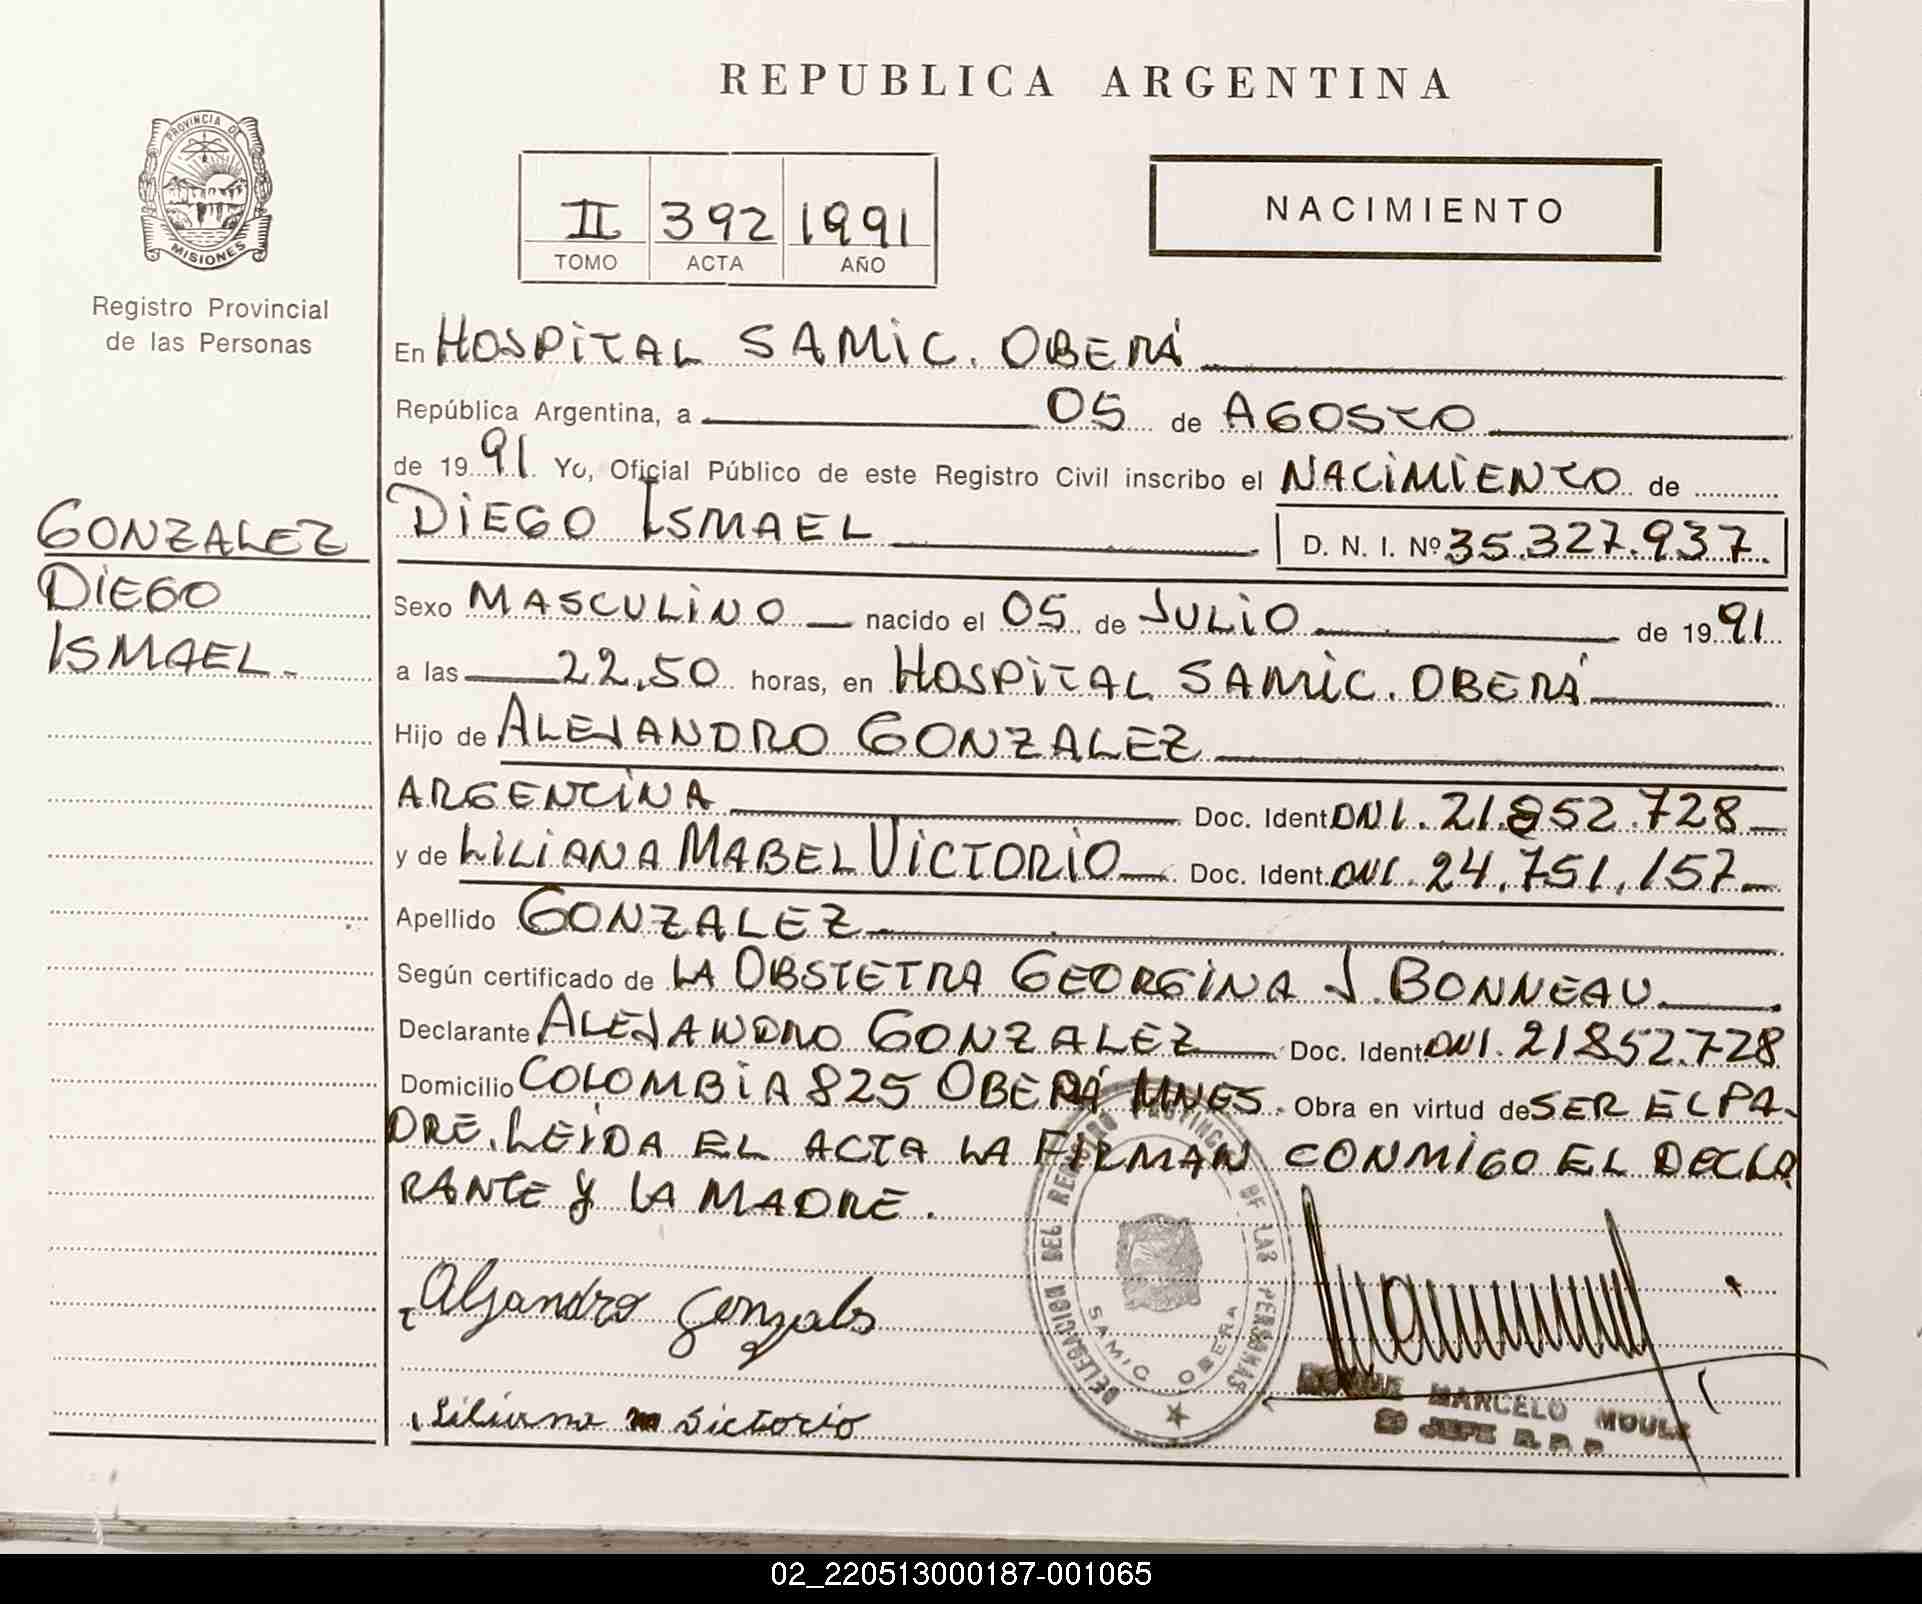 REPUBLICA ARGENTINA
PROVINCIA DE
MISIONES
Registro Provincial
de las Personas
II 392 1991
TOMO ACTA AÑO
NACIMIENTO
En HOSPITAL SAMIC. OBERÁ
República Argentina, a 05 de AGOSTO
de 19 91 Yo, Oficial Público de este Registro Civil inscribo el NACIMIENTO de
GONZALEZ
DIEGO
ISMAEL.
DIEGO ISMAEL D. N. I. Nº 35.327.937.
Sexo MASCULINO nacido el 05 de JULIO de 19 91
a las 22,50 horas, en HOSPITAL SAMIC. OBERÁ
Hijo de ALEJANDRO GONZALEZ
ARGENTINA Doc. Ident. DNI. 21.852.728
y de LILIANA MABEL VICTORIO Doc. Ident. DNI. 24.751.157
Apellido GONZALEZ
Según certificado de LA OBSTETRA GEORGINA J. BONNEAU
Declarante ALEJANDRO GONZALEZ Doc. Ident. DNI. 21852.728
Domicilio COLOMBIA 825 OBERÁ MNES. Obra en virtud de SER EL PA-
DRE. LEIDA EL ACTA LA FIRMAN CONMIGO EL DECLA
RANTE Y LA MADRE.
DELEGACION DEL REGISTRO PROVINCIAL DE LAS PERSONAS
SAMIC OBERA
Alejandro Gonzales
Liliana M Victorio
MARCELO
JEFE R. P. P.
02_220513000187-001065